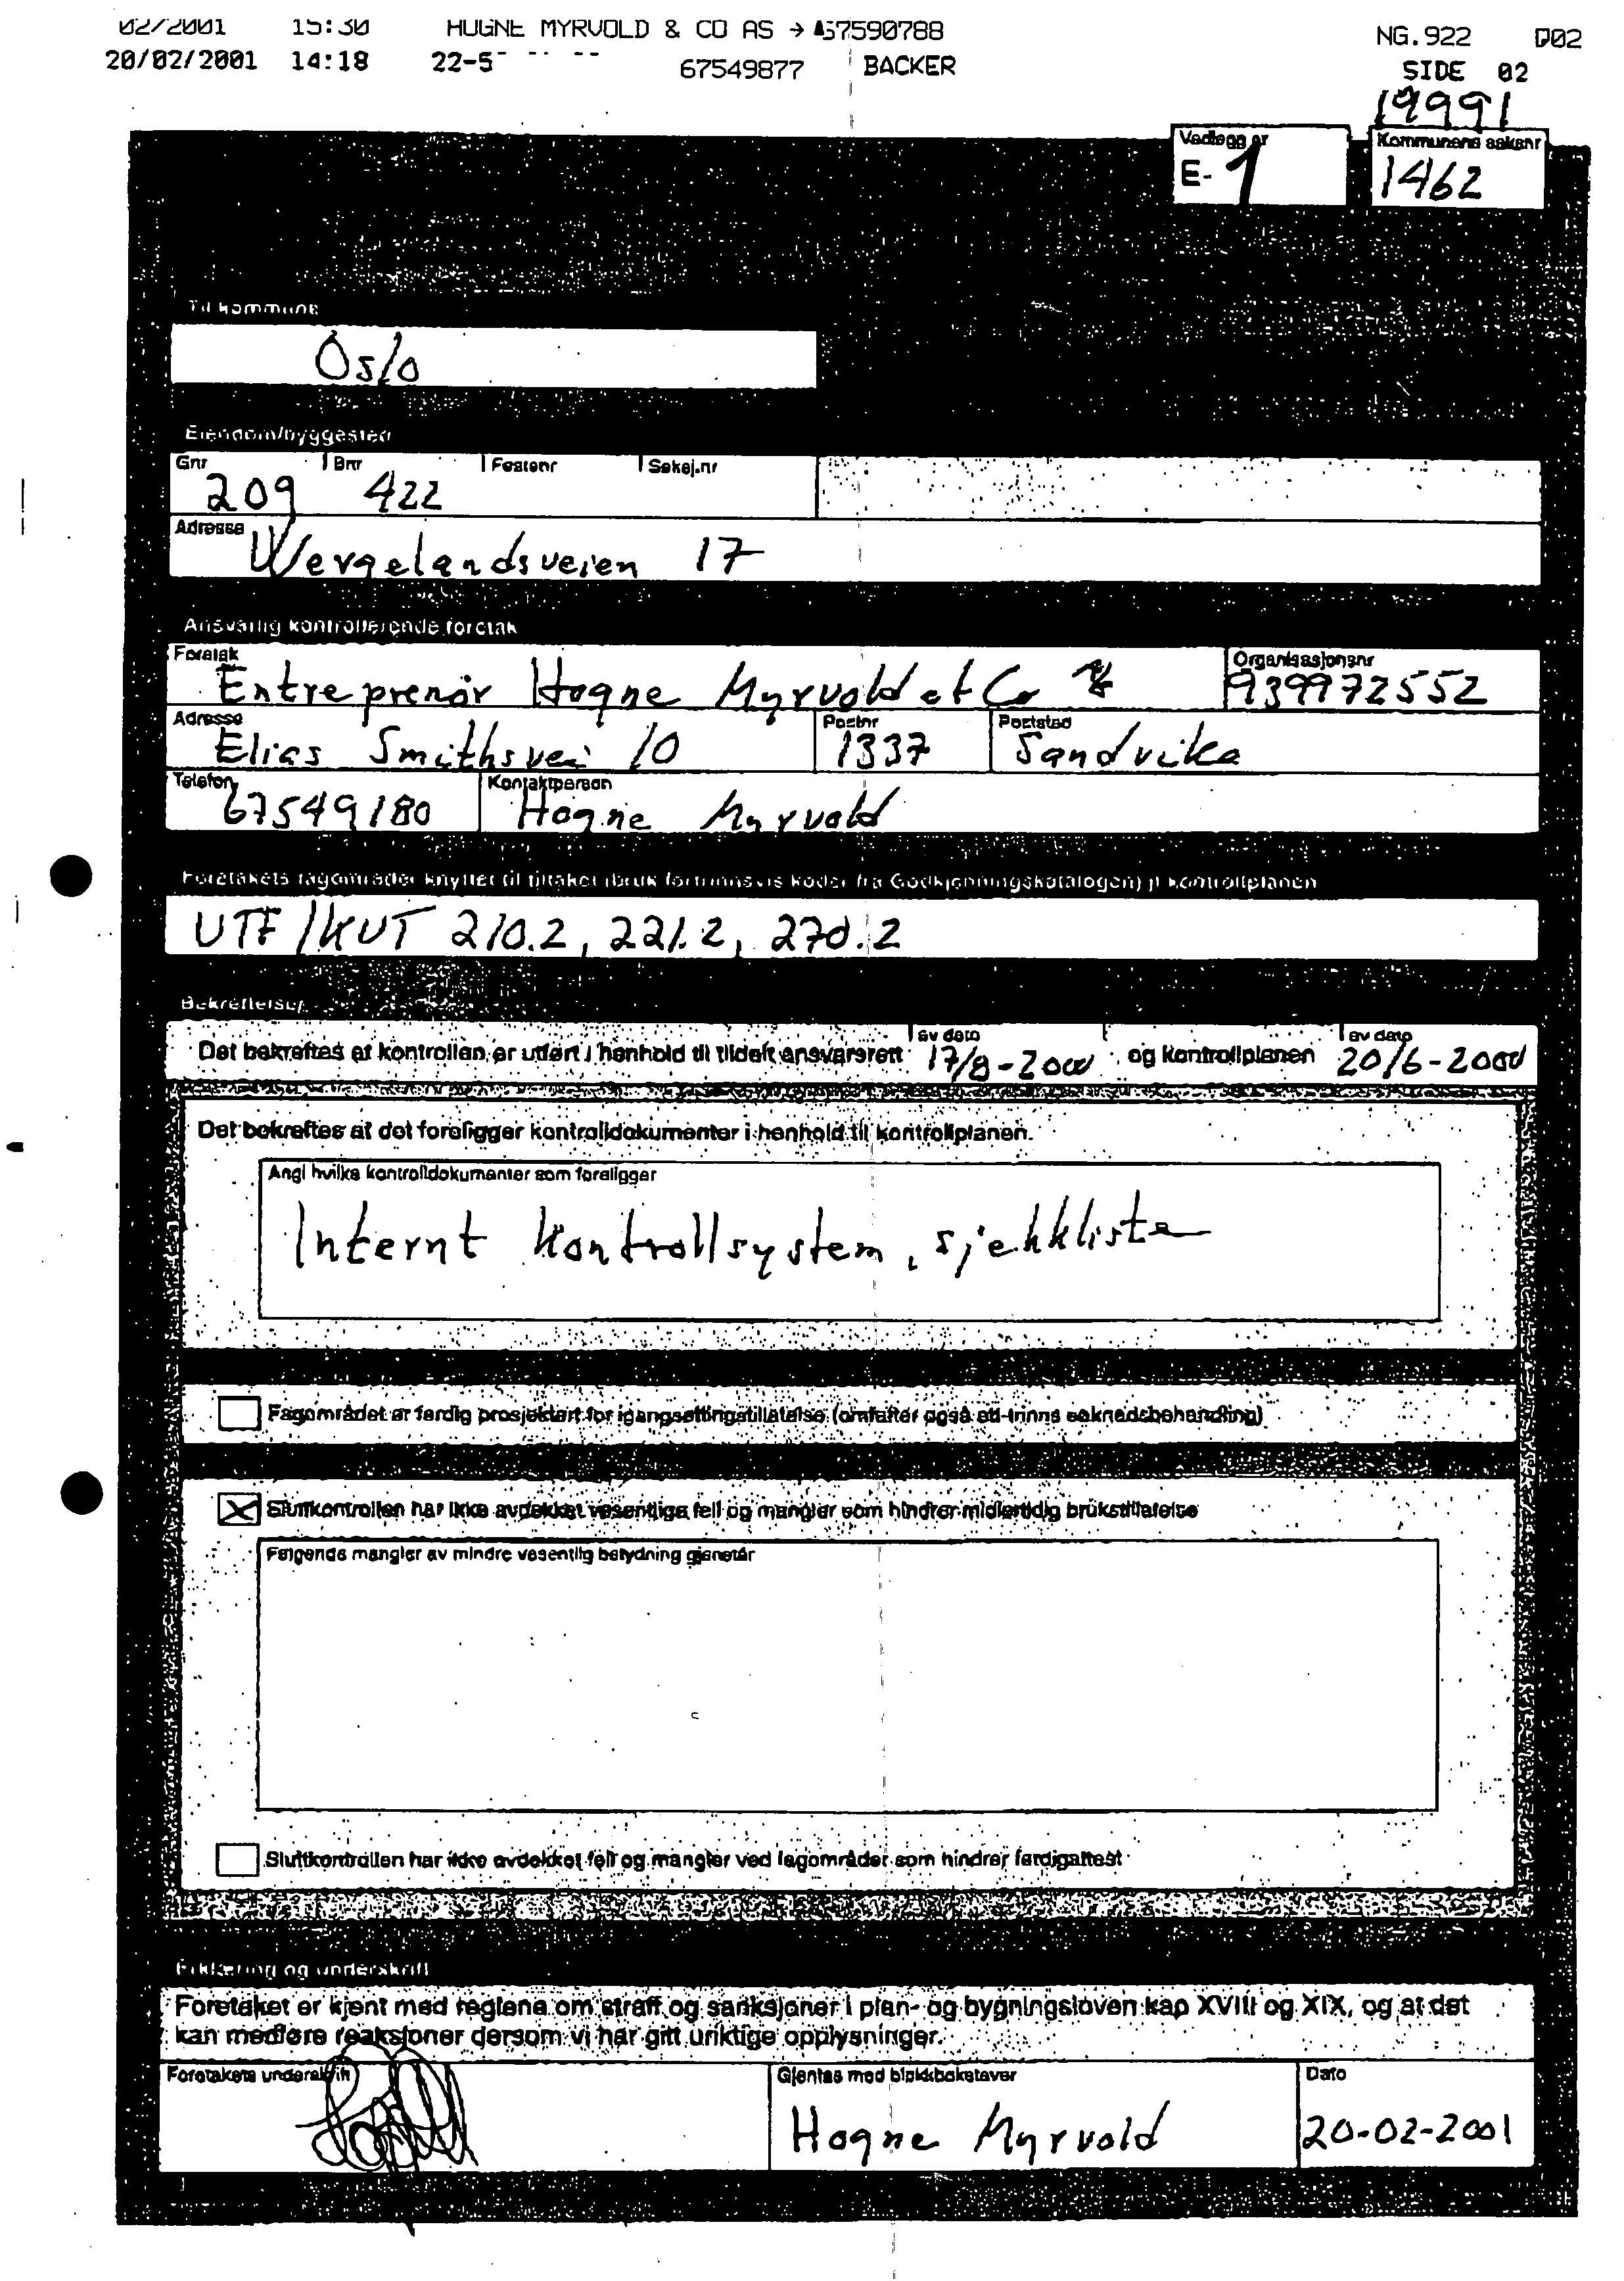 02/2001 15:30 HOGNE MYRVOLD & CO AS → 67590788 NG.922 D02
20/02/2001 14:18 22-5 67549877 BACKER SIDE 02
19991
Vedlegg nr
E- 1
Kommunens saksnr
1462
Til kommune
Oslo
Eiendom/byggested
Gnr Bnr Festenr Seksj.nr
209 422
Adresse
Wergelandsveien 17
Ansvarlig kontrollerende foretak
Foretak Organisasjonsnr
Entreprenør Hogne Myrvold et Co 939972552
Adresse Postnr Poststed
Elias Smithsvei 10 1337 Sandvika
Telefon Kontaktperson
67549180 Hogne Myrvold
Foretakets fagområder knyttet til tiltaket (bruk fortrinnsvis koder fra Godkjenningskatalogen) jf kontrollplanen
UTF/KUT 210.2, 221.2, 270.2
Bekreftelser
Det bekreftes at kontrollen er utført i henhold til tildelt ansvarsrett av dato 17/8-2000 og kontrollplanen av dato 20/6-2000
Det bekreftes at det foreligger kontrolldokumenter i henhold til kontrollplanen.
Angi hvilke kontrolldokumenter som foreligger
Internt kontrollsystem, sjekkliste
Fagområdet er ferdig prosjektert for igangsettingstillatelse (omfatter også ett-trinns søknadsbehandling)
Sluttkontrollen har ikke avdekket vesentlige feil og mangler som hindrer midlertidig brukstillatelse
Følgende mangler av mindre vesentlig betydning gjenstår
Sluttkontrollen har ikke avdekket feil og mangler ved fagområdet som hindrer ferdigattest
Erklæring og underskrift
Foretaket er kjent med reglene om straff og sanksjoner i plan- og bygningsloven kap XVIII og XIX, og at det
kan medføre reaksjoner dersom vi har gitt uriktige opplysninger.
Foretakets underskrift Gjentas med blokkbokstaver Dato
Hogne Myrvold 20-02-2001